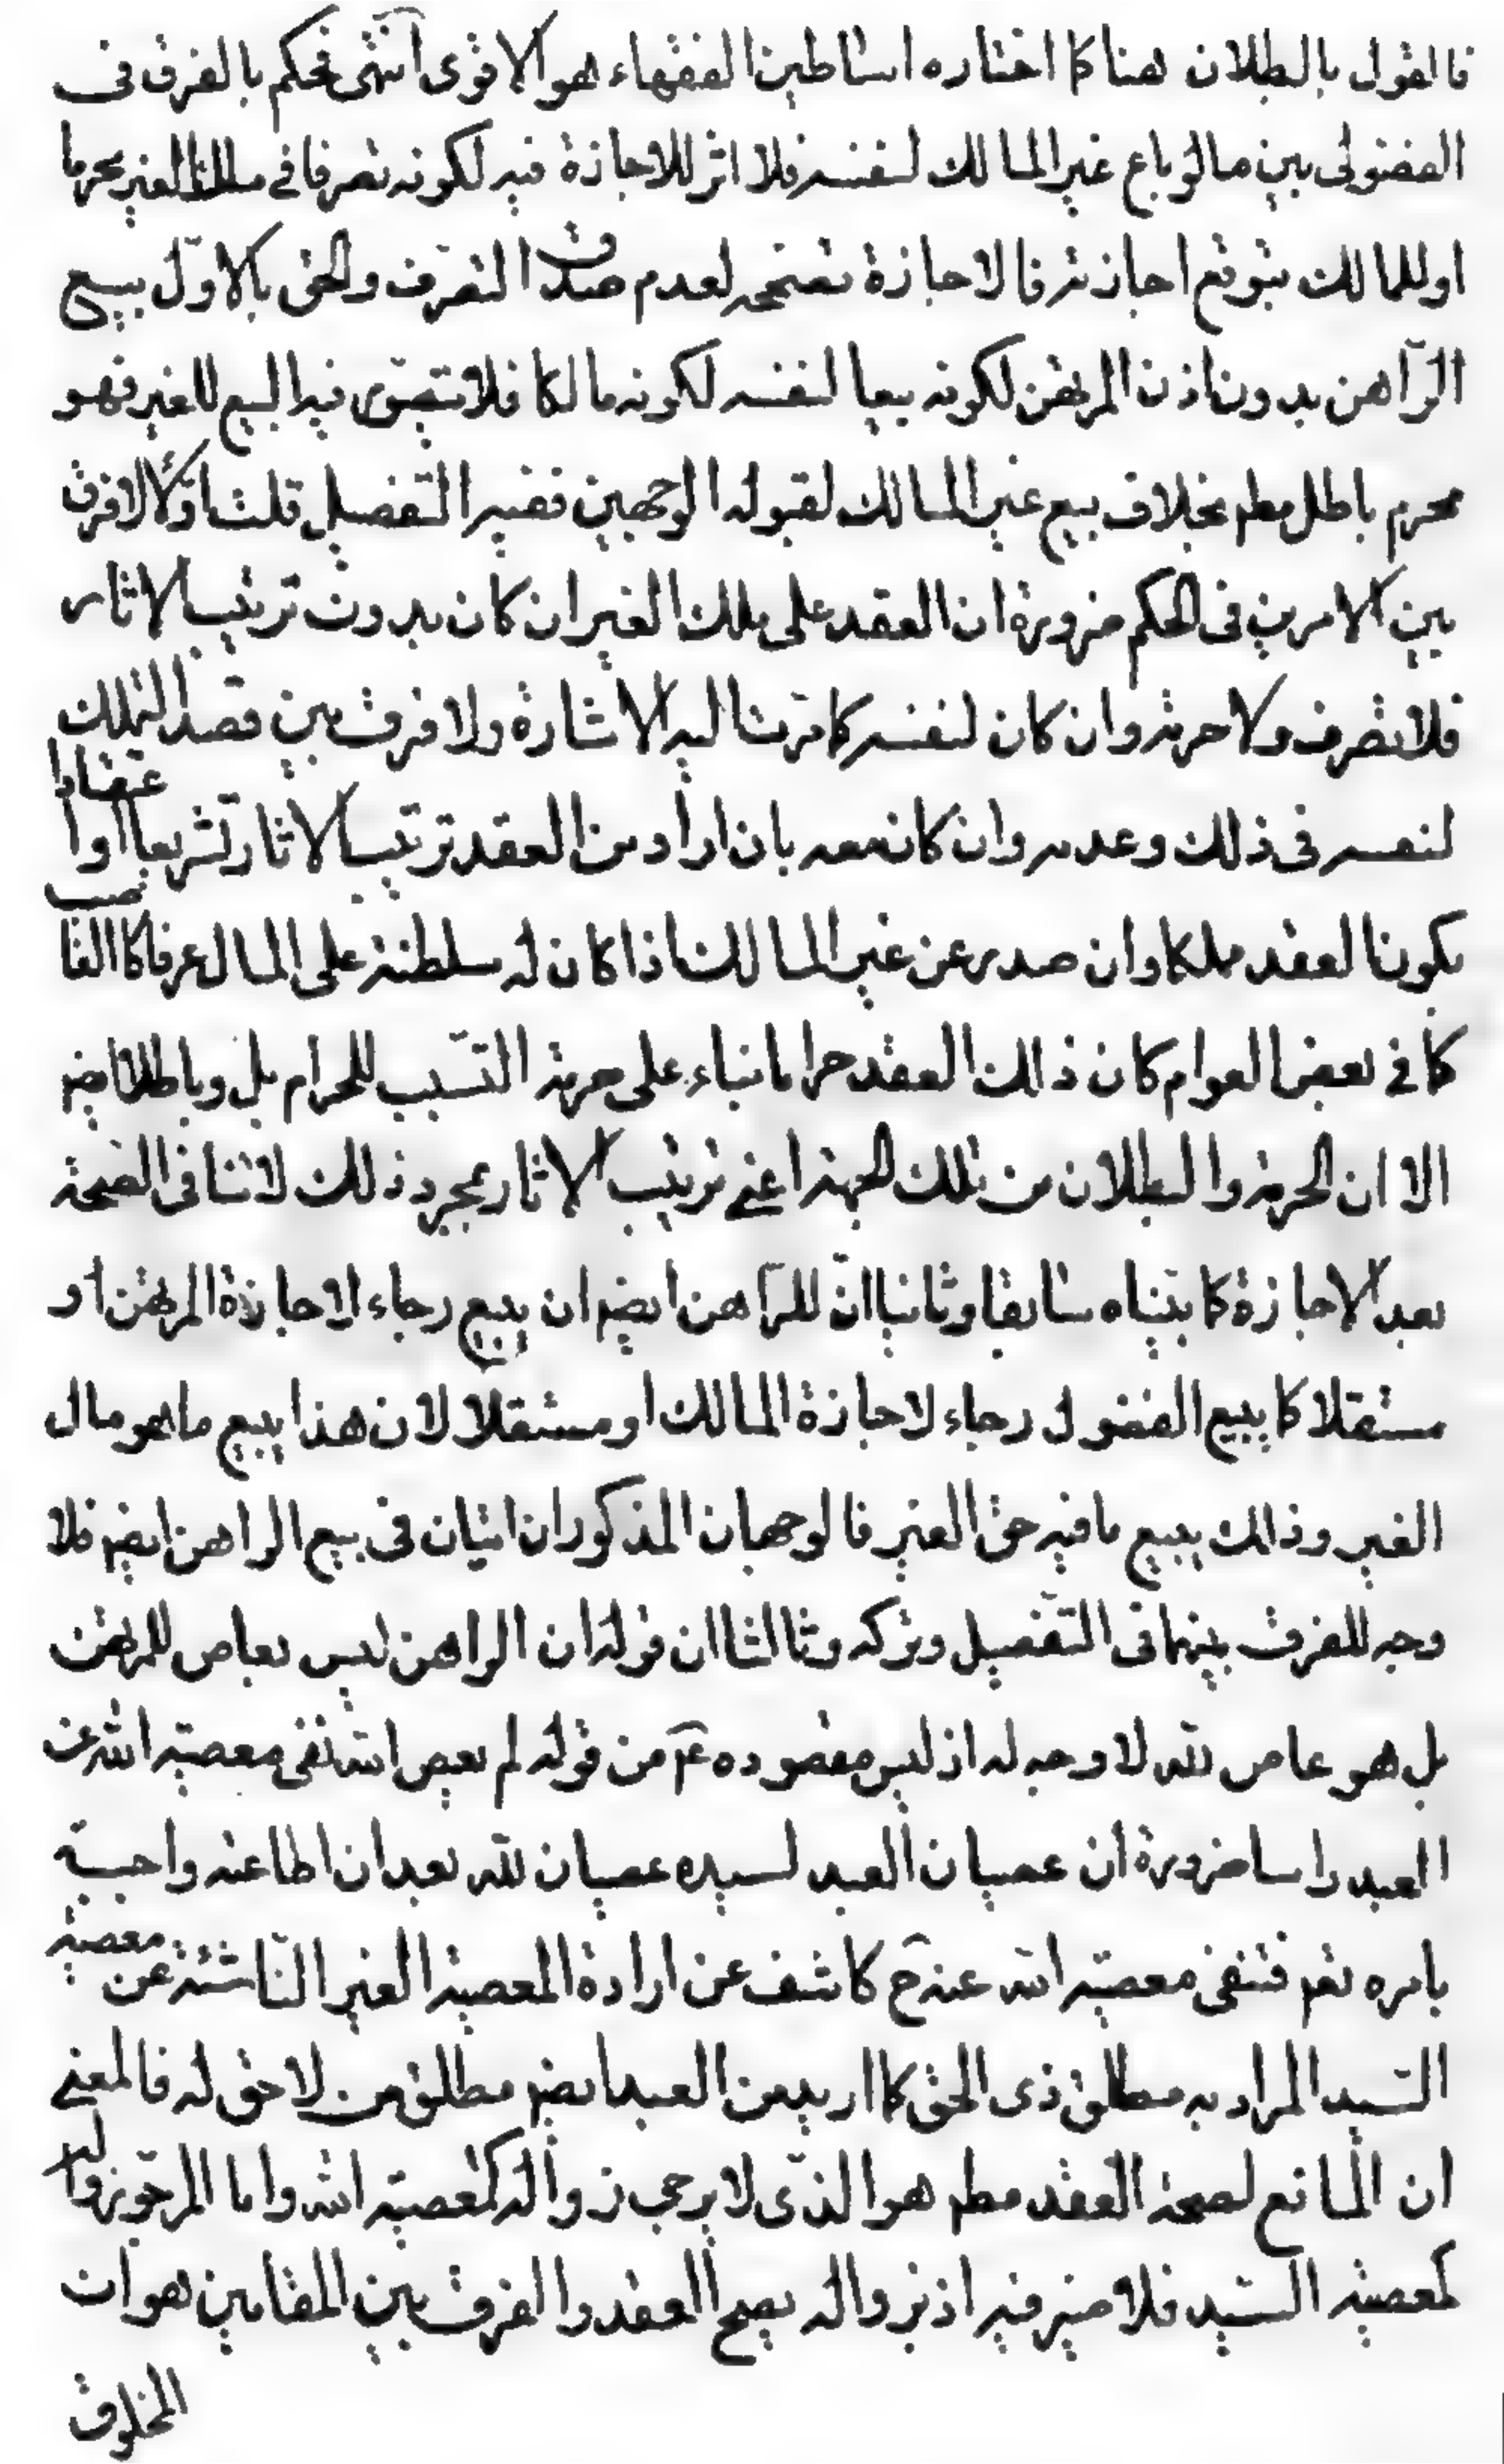 فالقول بالبطلان هنا كما اختاره اساطين الفقهاء هو الاقوى انتهى فحكم بالفرق فى
الفضولى بين ما لو باع غير المالك لنفسه فلا اثر للاجازة فيه لكونه تصرفا في سلطنة الغير محرما
او للمالك بتوقع اجازته فالاجازة تصححه لعدم صدق التصرف والحق بالاوّل بيع
الرّاهن بدون اذن المرتهن لكونه بيعا لنفسه لكونه مالكا فلا تصوّر فيه البيع للغير فهو
محرم باطل مطم بخلاف بيع غير المالك لقبوله الوجهين ففيه التفصيل قلت اوّلا لا فرق
بين الامرين فى الحكم ضرورة ان العقد على ملك الغير ان كان بدون ترتيب الاثار
فلا تصرف ولا حرمة وان كان لنفسه كما مرّت اليه الاشارة ولا فرق بين قصد التملك
لنفسه فى ذلك وعدمه وان كان معه بان اراد من العقد ترتيب الاثار تشريعا او اعتقادا
بكون العقد مملكا وان صدر عن غير المالك اذا كان له سلطنة على المال عرفا كالغاصب
كما في بعض العوام كان ذلك العقد حراما بناء على حرمة التسّبب للحرام بل وباطلا ايضم
الا ان الحرمة والبطلان من تلك الجهة اعنى ترتيب الاثار بمجرد ذلك لا تنافى الصّحة
بعد الاجازة كما بيّنّاه سابقا وثانيا انّ للرّاهن ايضم ان يبيع رجاء لاجازة المرتهن او
مستقلا كما يبيع الفضول رجاء لاجازة المالك او مستقلا لان هذا يبيع ما هو مال
الغير وذلك يبيع ما فيه حق الغير فالوجهان المذكوران اتيان فى بيع الراهن ايضم فلا
وجه للفرق بينهما فى التّفصيل وتركه وثالثا ان قوله ان الراهن ليس بعاص للمرتهن
بل هو عاص لله لا وجه له اذ ليس مقصوده عم من قوله لم يعص الله نفى معصية الله عن
العبد راسا ضرورة ان عصيان العبد لسيده عصيان لله بعد ان اطاعته واجبة
بامره تعم فنفى معصية الله عنه ح كاشف عن ارادة المعصية الغير النّاشئة عن معصية
السّيد المراد به مطلق ذى الحق كما اريد من العبد ايضم مطلق من لا حق له فالمعنى
ان المانع لصحة العقد مطم هو الذّى لا يرجى زواله كمعصية الله واما المرجّو زواله
كمعصية السّيد فلا ضير فيه اذ بزواله يصح العقد والفرق بين المقامين هو ان
المخلوق